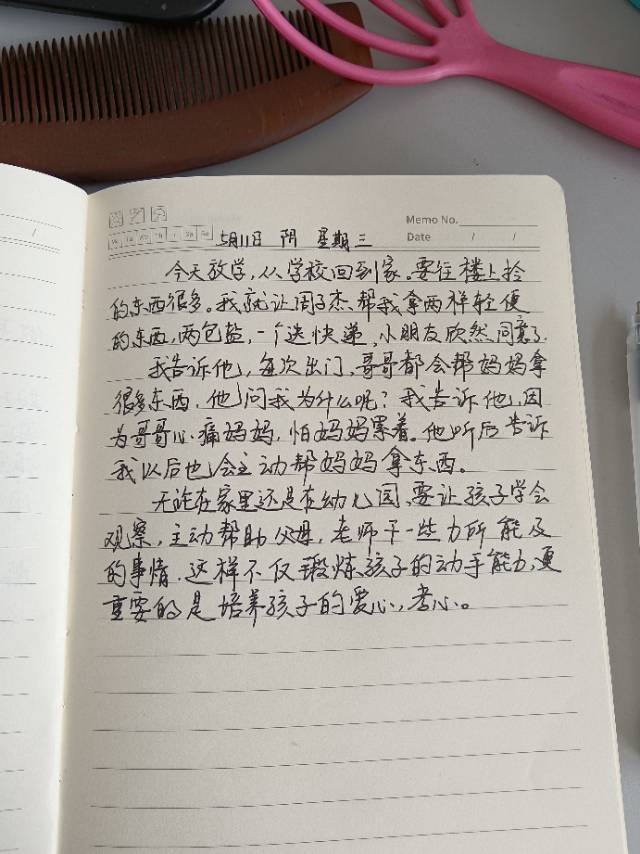 Memo No.
Date / /
5月11日 阴 星期三
今天放学,从学校回到家。要往楼上拎
的东西很多。我就让周子杰帮我拿两样轻便
的东西,两包盐,一个送快递,小朋友欣然同意了.
我告诉他,每次出门,哥哥都会帮妈妈拿
很多东西.他问我为什么呢?我告诉他,因
为哥哥心痛妈妈,怕妈妈累着。他听后告诉
我以后也会主动帮妈妈拿东西。
无论在家里还是在幼儿园,要让孩子学会
观察,主动帮助父母,老师干一些力所能及
的事情.这样不仅锻炼孩子的动手能力,更
重要的是培养孩子的爱心,孝心。